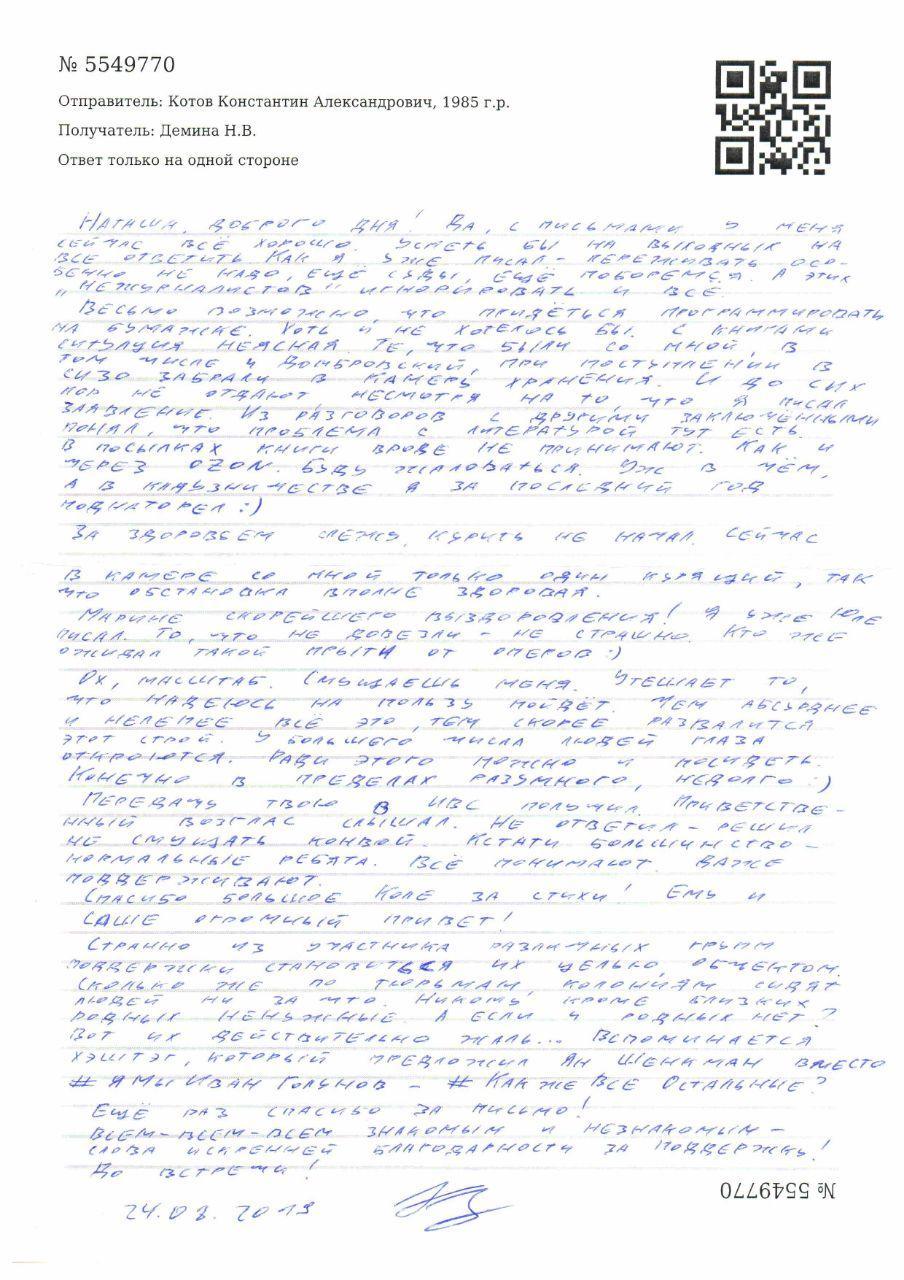 № 5549770
Отправитель: Котов Константин Александрович, 1985 г.р.
Получатель: Демина Н.В.
Ответ только на одной стороне
Наташа, доброго дня! Да, с письмами у меня
сейчас всё хорошо. Успеть бы на выходных на
все ответить. Как я уже писал - переживать осо-
бенно не надо, ещё суды, ещё поборемся. А этих
"нежурналистов" игнорировать и всё.
Весьмо возможно, что придёться программировать
на бумажке. Хоть и не хотелось бы. С книгами
ситуация неясная. Те, что были со мной, в
том числе и Домбровский, при поступлении в
СИЗО забрали в камеру хранения. И до сих
пор не отдают несмотря на то что я писал
заявление. Из разговоров с другими заключёнными
понял, что проблема с литературой тут есть.
В посылках книги вроде не принимают. Как и
через OZON. Буду жаловаться. Уж в чём,
а в кляузничестве я за последний год
поднаторел :)
За здоровьем слежу, курить не начал. Сейчас
в камере со мной только один курящий, так
что обстановка вполне здоровая.
Марине скорейшего выздоровления! Я уже Юле
писал. То, что не довезли - не страшно. Кто же
ожидал такой прыти от оперов :)
Ох, масштаб. Смущаешь меня. Утешает то,
что надеюсь на пользу пойдёт. Чем абсурднее
и нелепее всё это, тем скорее развалится
этот строй. У большего числа людей глаза
откроются. Ради этого можно и посидеть.
Конечно в пределах разумного, недолго :)
Передачу твою в ИВС получил. Приветстве-
нный возглас слышал. Не ответил - решил
не смущать конвой. Кстати большинство -
нормальные ребята. Всё понимают. Даже
поддерживают.
Спасибо большое Коле за стихи! Ему и
Саше огромный привет!
Странно из участника различных групп
поддержки становиться их целью, объектом.
Сколько же по тюрьмам, колониям сидят
людей ни за что. Никому кроме близких
родных ненужные. А если и родных нет?
Вот их действительно жаль... Вспоминается
хэштэг, который предложил Ян Шенкман вместо
# ЯМы Иван Голунов - # Как же Все Остальные?
Ещё раз спасибо за письмо!
Всем-всем-всем знакомым и незнакомым -
слова искренней благодарности за поддержку!
До встречи!
№ 5549770
24.08.2019